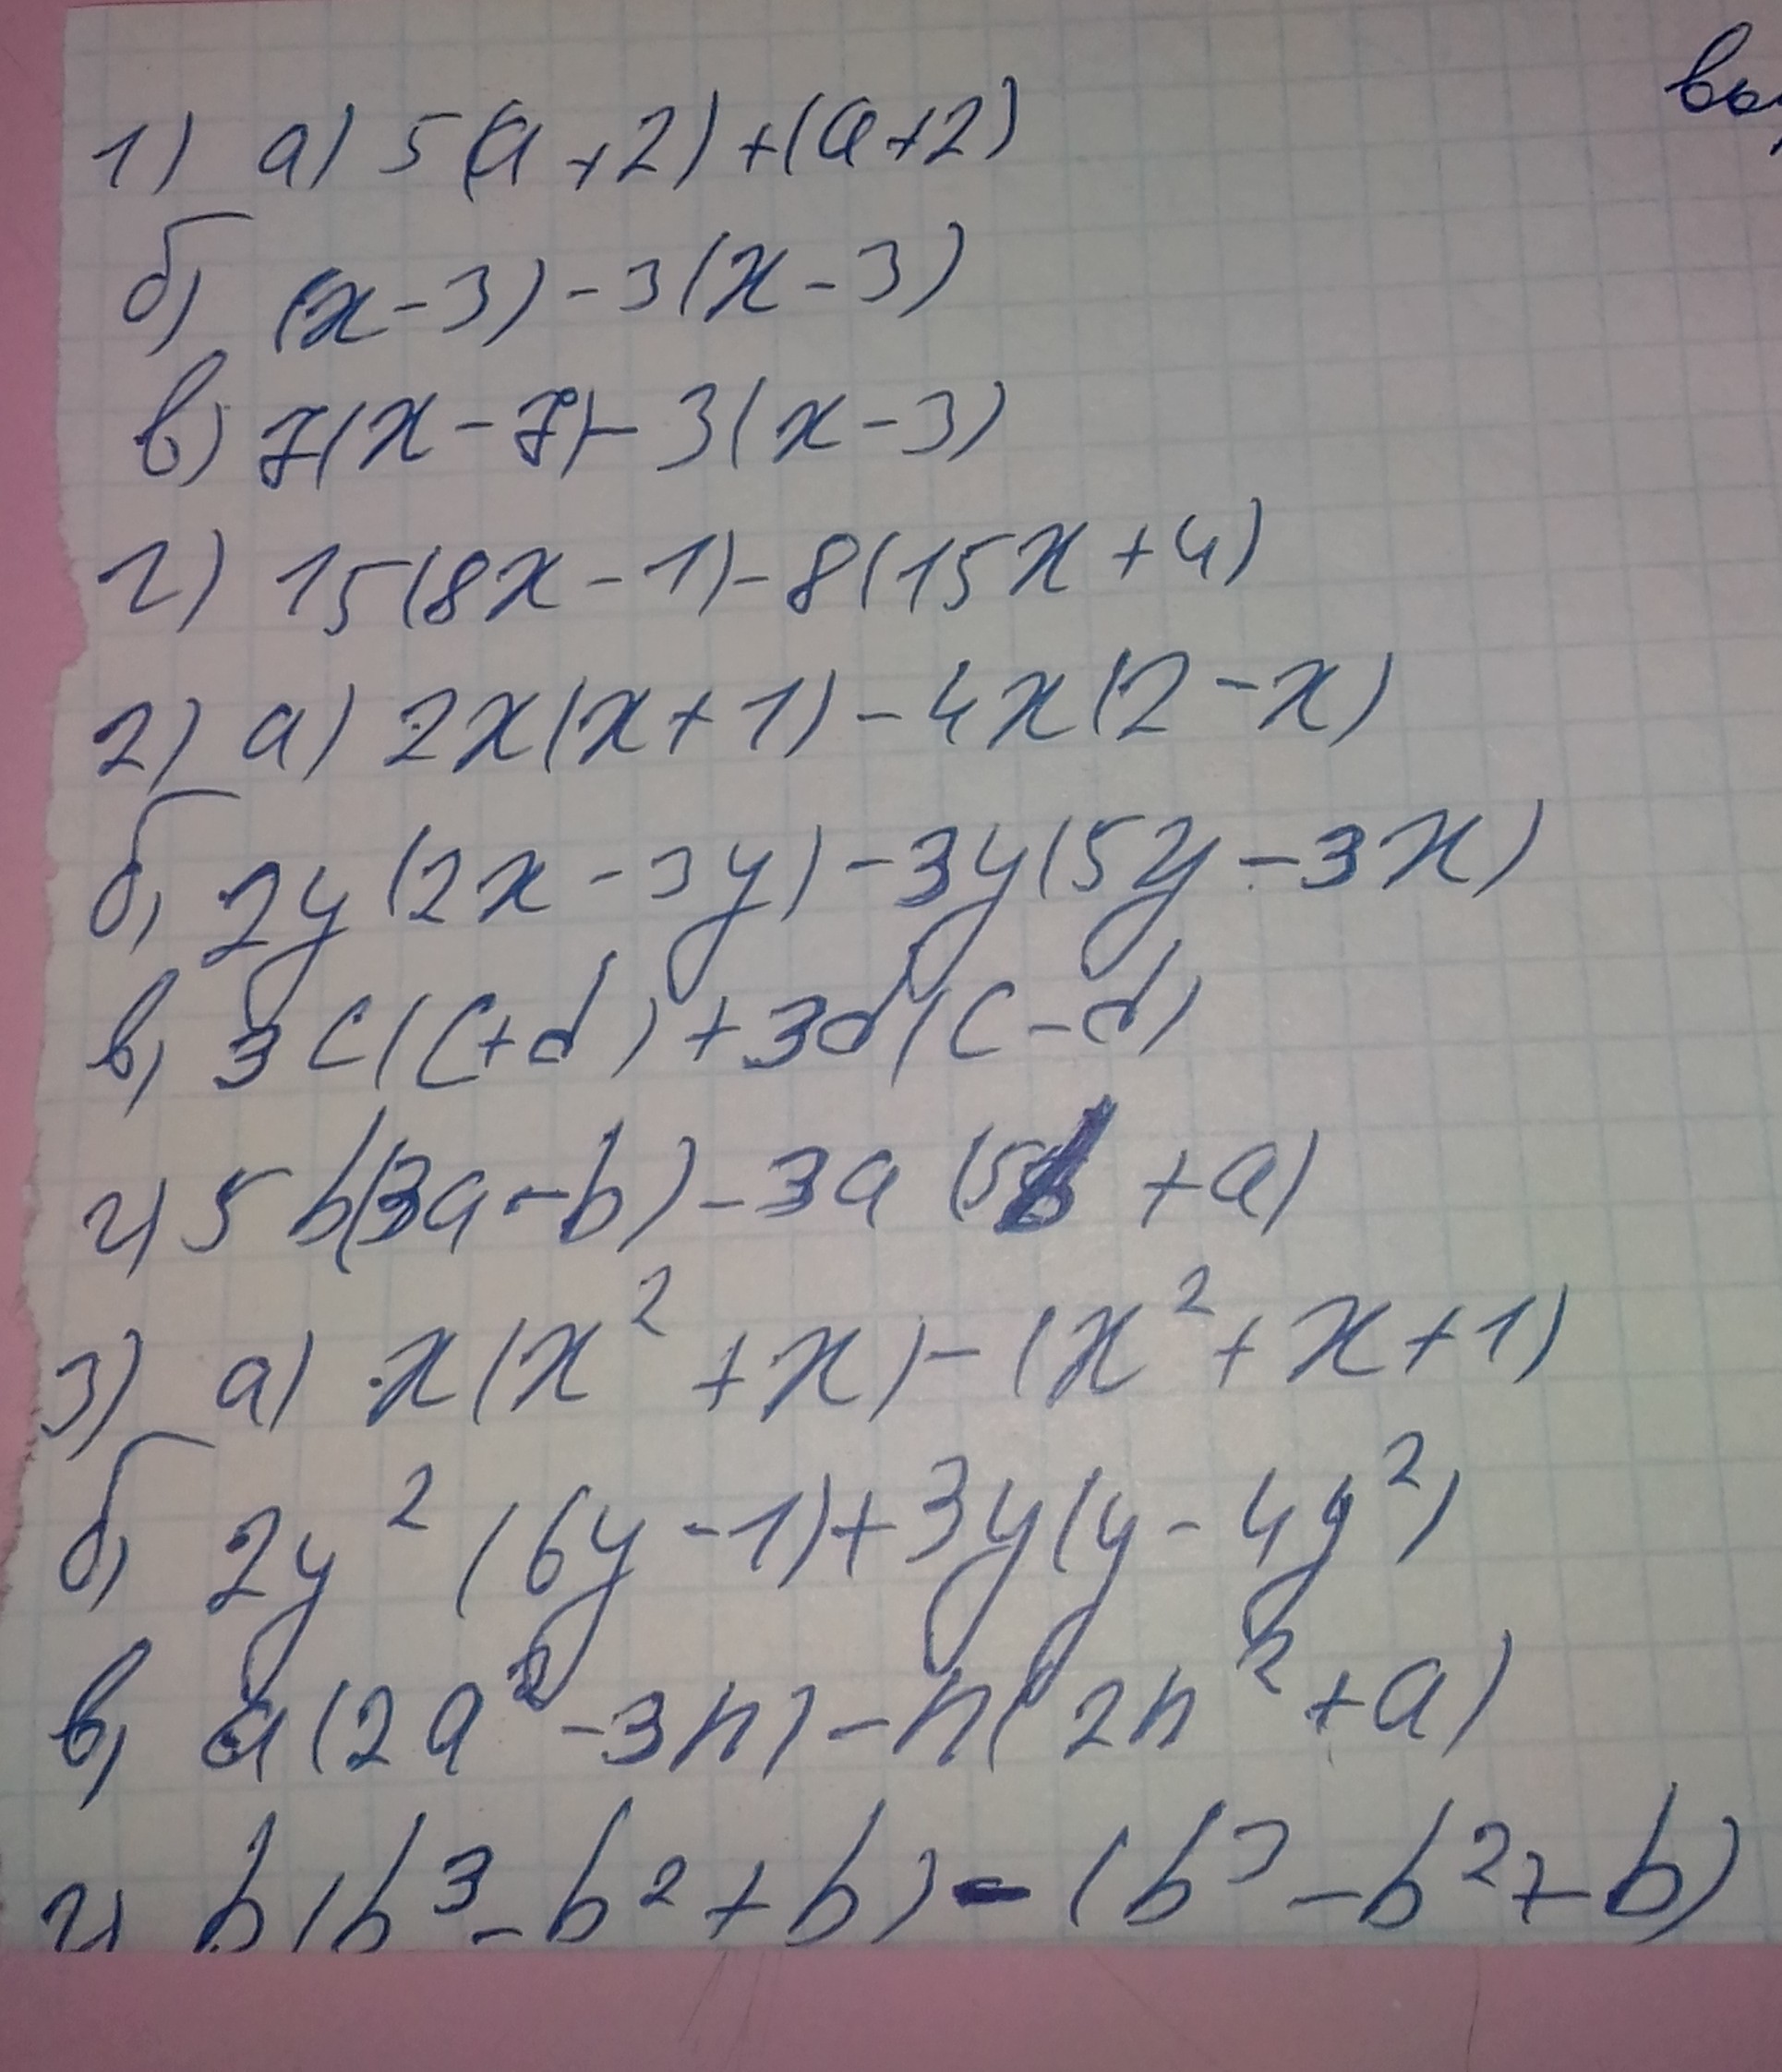 1) а) 5(a+2)+(a+2)
б) (x-3)-3(x-3)
в) 7(x-7)-3(x-3)
г) 15(8x-1)-8(15x+4)
2) а) 2x(x+1)-4x(2-x)
б) 2y(2x-3y)-3y(5y-3x)
в) 3c(c+d)+3d(c-d)
г) 5b(3a-b)-3a(5b+a)
3) а) x(x²+x)-(x²+x+1)
б) 2y²(6y-1)+3y(y-4y²)
в) a(2a²-3n)-n(2n²+a)
г) b(b³-b²+b)-(b³-b²+b)